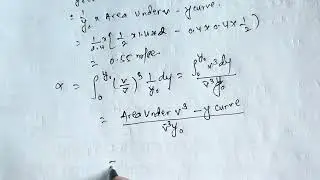 = 1/y₀ × Area under v - y curve
= 1/0.4 × [1/2 × 1.4 × 2 - 0.4 × 0.4 × 1/2]
= 0.55 m/s
α = ∫₀^y₀ (v/v̄)³ 1/y₀ dy = ∫₀^y₀ v³ dy / v̄³ y₀
= Area Under v³ - y curve / v̄³ y₀
=